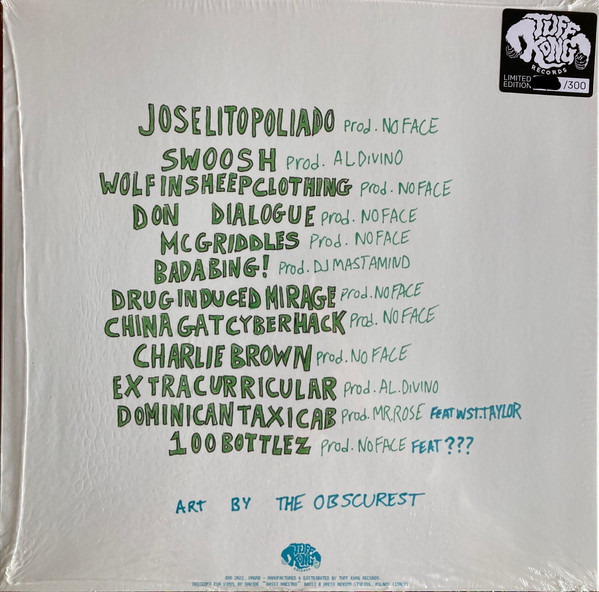 TUFF
KONG
RECORDS
LIMITED
EDITION /300
JOSELITOPOLIADO Prod. NO FACE
SWOOSH Prod. AL DIVINO
WOLFINSHEEPCLOTHING Prod. NO FACE
DON DIALOGUE Prod. NO FACE
MCGRIDDLES Prod. NO FACE
BADABING! Prod. DJ MASTAMIND
DRUG INDUCED MIRAGE Prod. NO FACE
CHINAGATCYBERHACK Prod. NO FACE
CHARLIE BROWN Prod. NO FACE
EXTRACURRICULAR Prod. AL.DIVINO
DOMINICANTAXICAB Prod. MR.ROSE FEAT WST.TAYLOR
100BOTTLEZ Prod. NO FACE FEAT ???
ART BY THE OBSCUREST
TUFF
KONG
RECORDS
MANUFACTURED & DISTRIBUTED BY TUFF KONG RECORDS